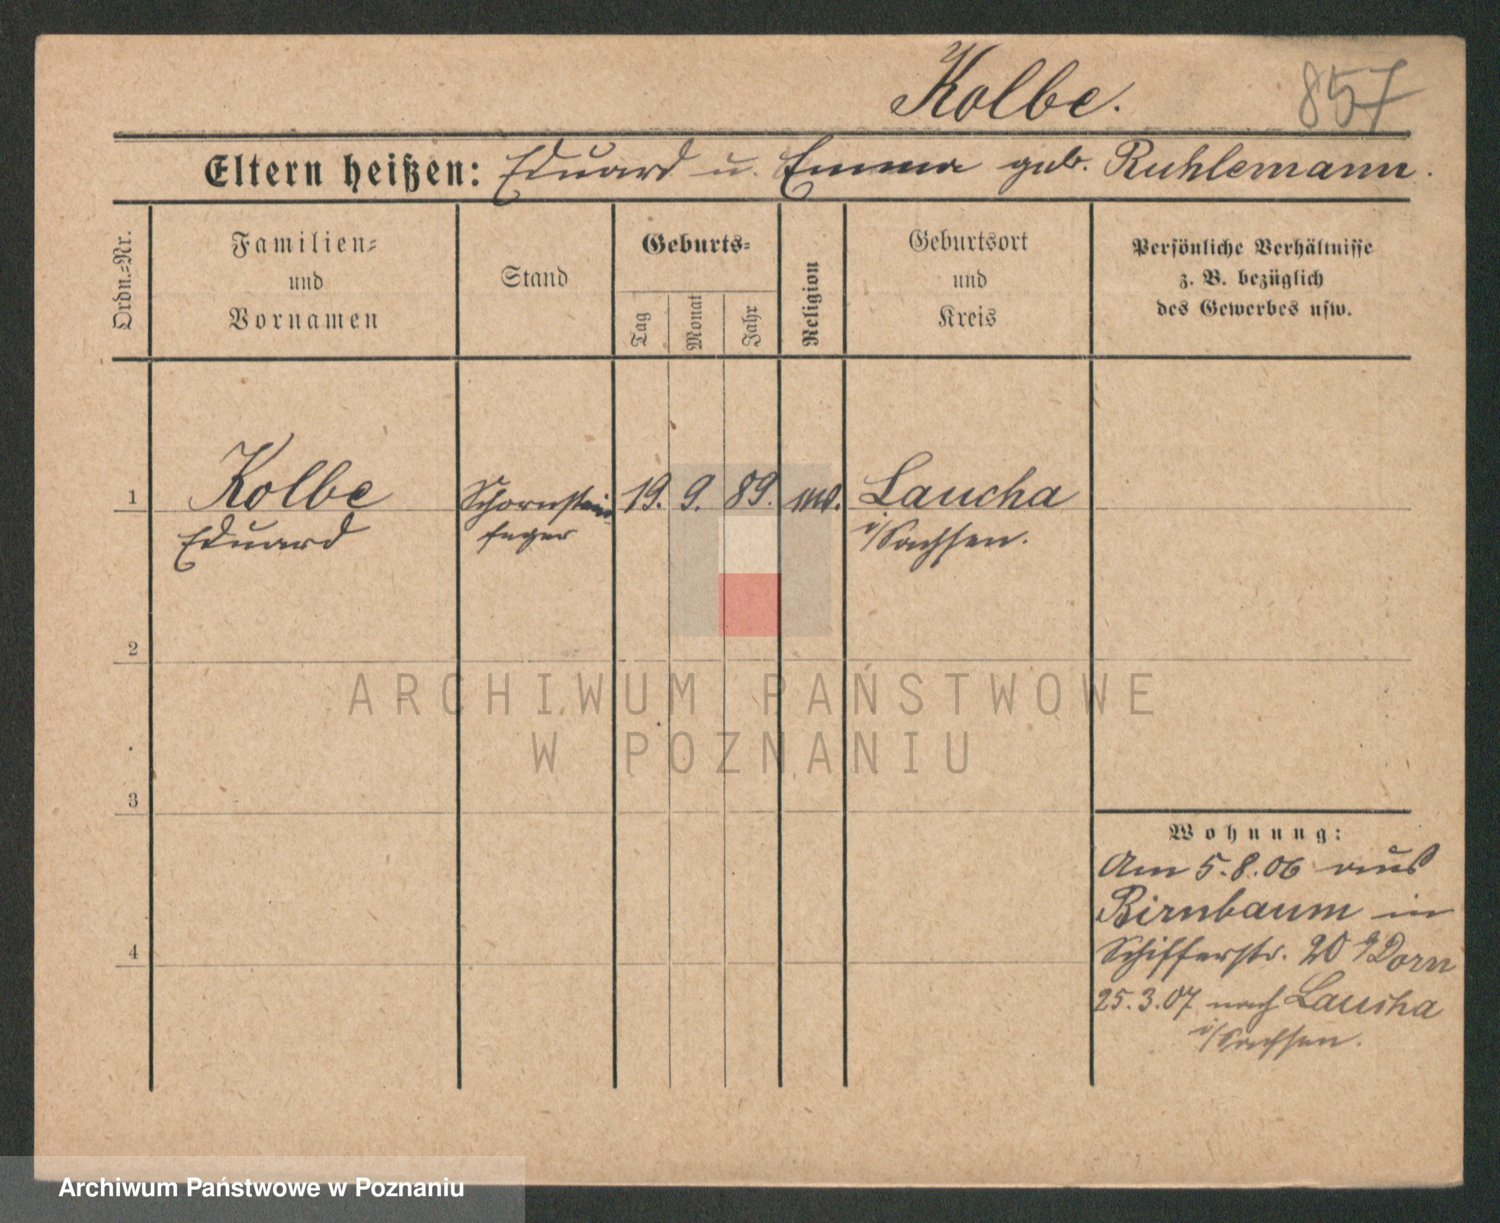 Kolbe.
857
Eltern heißen: Eduard u. Emma geb. Ruhlemann.
Ordn.=Nr.
Familien=
und
Vornamen
Stand
Geburts=
Tag
Monat
Jahr
Religion
Geburtsort
und
Kreis
Persönliche Verhältnisse
z. B. bezüglich
des Gewerbes usw.
1
Kolbe
Eduard
Schornstein
feger
19. 9. 89.
Laucha
i/Sachsen.
2
3
4
Wohnung:
Am 5.8.06 aus
Birnbaum in
Schifferstr. 20 Dorn
25.3.07 nach Laucha
i/Sachsen.
ARCHIWUM PAŃSTWOWE
W POZNANIU
Archiwum Państwowe w Poznaniu